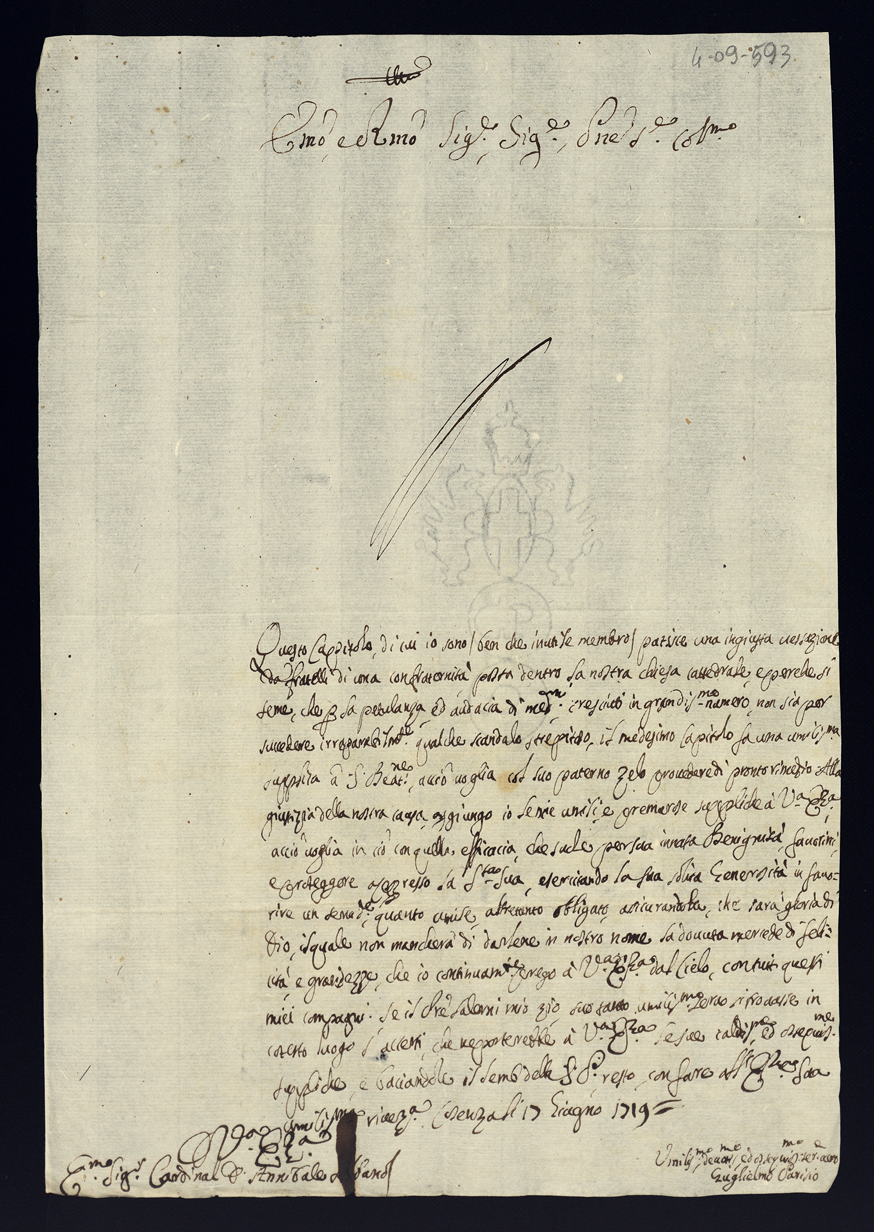 4-09-593.
Emo, e Rmo Sig.re, Sig.re, Pne Colmo
Questo Cappitolo, di cui io sono / ben che inutile membro / patisce una ingiusta vessazione
da fratelli di una confraternità posta dentro la nostra chiesa cattedrale, e perche si
teme, che p la petulanza ed audacia di med.mi cresciuti in grandis.mo numero, non sia per
succedere irreparabilm.te qualche scandalo strepitoso, il medesimo Capitolo fa una umilis.ma
supplica à S. Beat.ne, acciò voglia col suo paterno zelo provedere di pronto rimedio. Alla
giustizia della nostra causa, aggiungo io le mie umili, e premurose suppliche à V.a Em.za
acciò voglia in ciò con quella efficacia, che suole per sua innata Benignità, favorirmi,
e proteggere appresso la S.tà Sua, esercitando la sua solita Generosità in favo-
rire un quanto umile, altretanto obligato, assicurandola, che sarà gloria di
Dio, il quale non mancherà di darlene in nostro nome la dovuta mercede di feli-
cità, e grandezze, che io continuam.te prego à V.a Em.za dal Cielo, con tutti questi
miei compagni. Se il Salerni mio zio, suo umilis.mo servo si trovasse in
cotesto luogo s'accerti, che ne porterebbe à V.a Em.za le sue caldis.me, ed ossequios.me
suppliche, e baciandole il lembo della S. P. resto, con fare all' Em.za Sua
umilis.ma river.za Cosenza li 17 Giugno 1719
D. V.a Em.za
Em.mo Sig.r Cardinal D. Annibale Albani
Umilis.mo devotis.mo, ed osseq.mo ser.re vero
Guglielmo Parisio